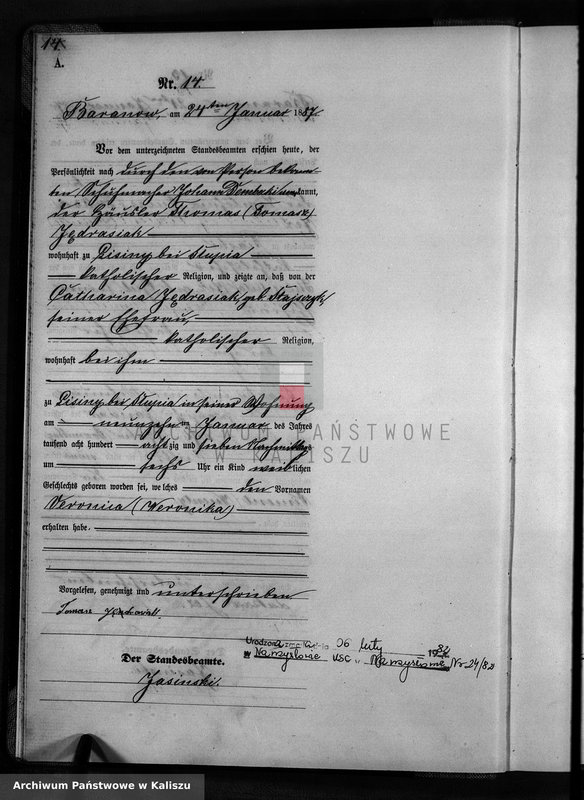 14.
A.
Nr. 14.
Baranow, am 24ten Januar 1887.
Vor dem unterzeichneten Standesbeamten erschien heute, der
Persönlichkeit nach durch den von Person bekann-
ten Schuhmacher Johann Dembski kannt,
der Häusler Thomas (Tomasz)
Jędrasiak
wohnhaft zu Lisiny bei Slupia
katholischer Religion, und zeigte an, daß von der
Catharina Jędrasiak, geb.
seiner Ehefrau,
katholischer Religion,
wohnhaft bei ihm
zu Lisiny bei Slupia in seiner Wohnung
am neunzehn ten Januar des Jahres
tausend acht hundert achtzig und sieben Nachmittags
um sechs Uhr ein Kind weiblichen
Geschlechts geboren worden sei, welches den Vornamen
Veronica (Weronika)
erhalten habe.
Vorgelesen, genehmigt und unterschrieben
Tomasz
Der Standesbeamte.
Jasinski.
06 luty 1982
w Namysłowie USC w Namysłowie Nr 24/82
ARCHIWUM PAŃSTWOWE
W KALISZU
Archiwum Państwowe w Kaliszu